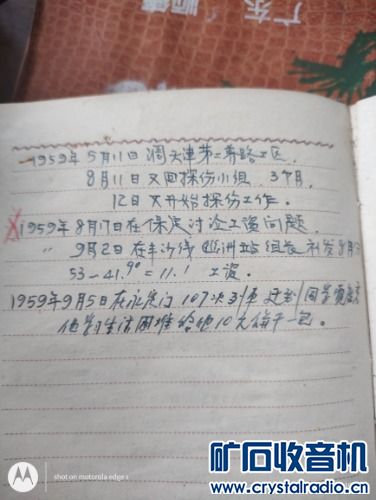 广东 顺德
1959年5月11日调天津第二养路工区
8月11日又回探伤小组，3个月，
12日又开始探伤工作。
1959年8月17日在保定讨论工资问题，
〃 9月2日在丰沙线 洲站 补发8月
53-41.90=11.1 工资。
1959年9月5日在永定门107次列车
他 生活困难给他10元 饼干一包。
shot on motorola edge s
矿石收音机
www.crystalradio.cn